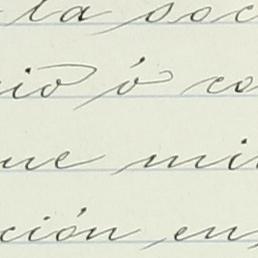 la soc
cio ó co
que mi
ción en